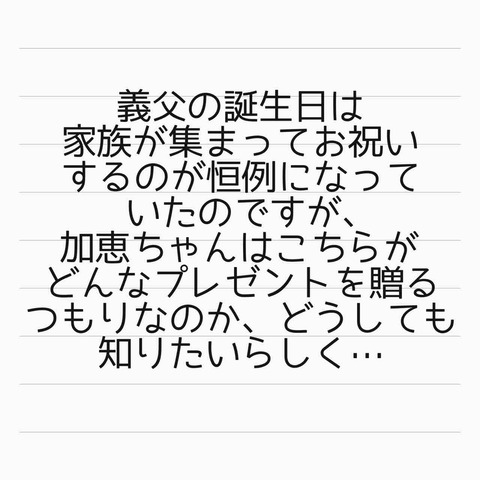 義父の誕生日は
家族が集まってお祝い
するのが恒例になって
いたのですが、
加恵ちゃんはこちらが
どんなプレゼントを贈る
つもりなのか、どうしても
知りたいらしく…